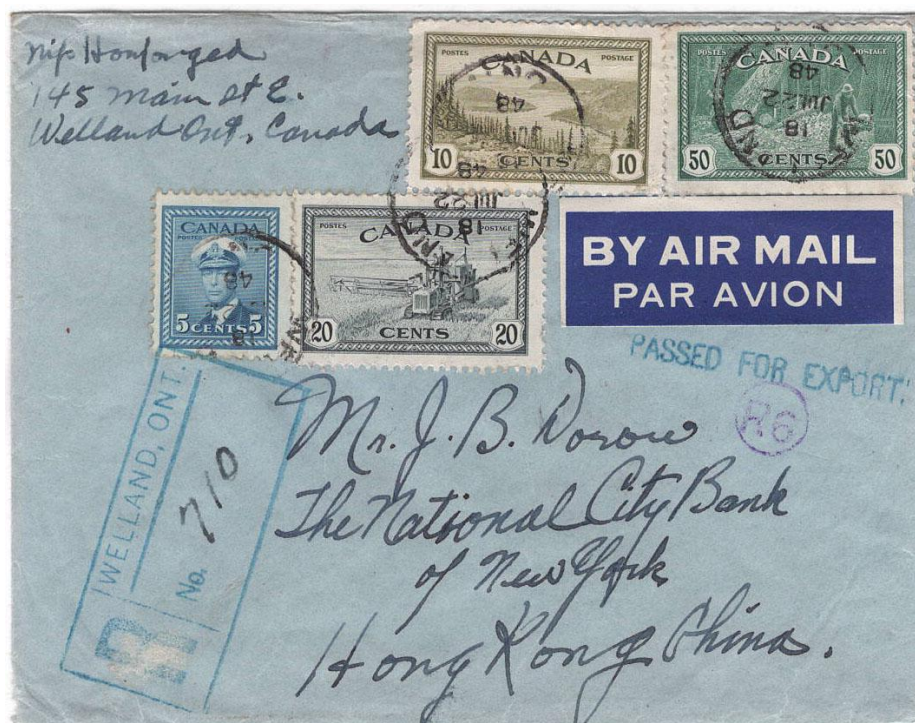 145 Main St E.
Welland Ont, Canada
POSTES CANADA POSTAGE
10 CENTS 10
POSTES CANADA POSTAGE
50 CENTS 50
CANADA
POSTES POSTAGE
5 CENTS 5
POSTES CANADA POSTAGE
20 CENTS 20
18
JUL 22
48
18
JUL 22
48
BY AIR MAIL
PAR AVION
PASSED FOR EXPORT.
R6
WELLAND, ONT.
No. 710
R
Mr. J. B. Dorow
The National City Bank
of New York
Hong Kong China.